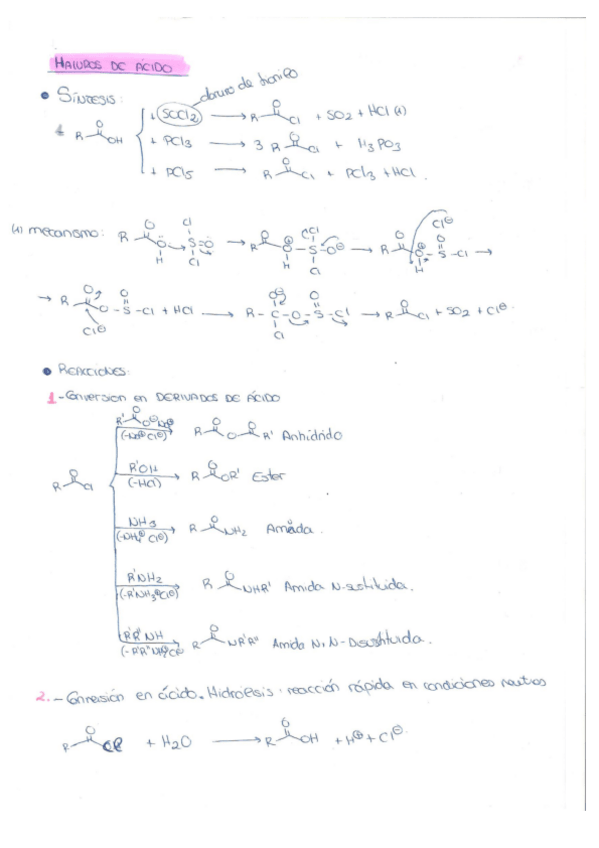 HALUROS DE ÁCIDO
• SÍNTESIS: cloruro de tionilo
+ SOCl2 → R O Cl + SO2 + HCl (1)
R O OH + PCl3 → 3 R O Cl + H3PO3
+ PCl5 → R O Cl + PCl3 + HCl.
(1) mecanismo: R O O H Cl S=O Cl → R O O⊕ H Cl S Cl O⊖ → R O O⊕ H O S -Cl Cl⊖ →
→ R O O - S O -Cl + HCl → R - C - O - S - Cl O⊖ O Cl → R O Cl + SO2 + Cl⊖.
Cl⊖
• REACCIONES:
1.- Conversión en DERIVADOS DE ÁCIDO
R' O O⊖ Na⊕ (-Na⊕Cl⊖) → R O O O R' Anhídrido
R O Cl R'OH (-HCl) → R O OR' Ester
NH3 (-NH4⊕Cl⊖) → R O NH2 Amida.
R'NH2 (-R'NH3⊕Cl⊖) → R O NHR' Amida N-sustituida.
R'R''NH → R O NR'R'' Amida N,N-Disustituida.
2.- Conversión en ácido. Hidrólisis: reacción rápida en condiciones neutras
R O Cl + H2O → R O OH + H⊕ + Cl⊖